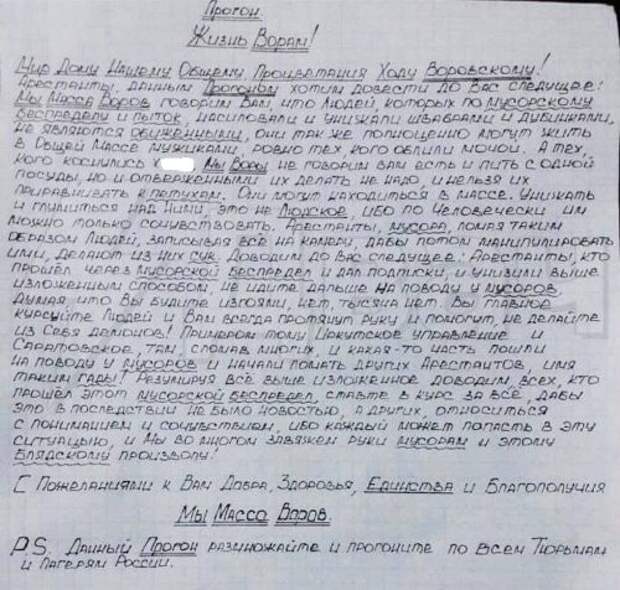 Прогон.
Жизнь Ворам!
Мир Дому Нашему Общему, Процветания Ходу Воровскому!
Арестанты, данным Прогоном хотим довести до Вас следущее:
Мы Масса Воров говорим Вам, что Людей, которых по мусорскому
беспределу и пыток, насиловали и унижали швабрами и дубинками,
не являются обиженными, они так же полноценно могут жить
в Общей Массе мужиками, ровно тех кого облили мочой. А тех,
кого коснулись х Мы Воры не говорим вам есть и пить с одной
посуды, но и отверженными их делать не надо, и нельзя их
приравнивать к петухам. Они могут находиться в массе. Унижать
и глумиться над ними, это не Людское, ибо по Человечески им
можно только сочувствовать. Арестанты, мусора, ломая таким
образом Людей, записывая всё на камери, дабы потом манипулировать
ими, делают из них сук. Доводим до Вас следущее: Арестанты, кто
прошёл через мусорской беспредел и дал подписки, и унизили выше
изложенным способом, не идите дальше на поводу у мусоров
Думая, что Вы будите изгоями, нет, тысяча нет! Вы главное
курсуйте Людей и Вам всегда протянут руку и помогут, не делайте
из Себя демонов! Примером тому Иркутское управление и
Саратовское, там, сломав многих, и какая-то часть пошли
на поводу у мусоров и начали ломать других Арестантов, имя
таким гады! Резумируя всё выше изложенное доводим, всех, кто
прошёл этот мусорской беспредел, ставте в курс за всё, дабы
это в последствии не было новостью, а других, относиться
с пониманием и сочувствием, ибо каждый может попасть в эту
ситуацыю, и Мы во многом завяжем руки мусорам и этому
Блядскому произволу!
С Пожеланиями к Вам Добра, Здоровья, Единства и Благополучия
Мы Масса Воров.
P.S. Данный Прогон размножайте и прогоните по всем Тюрьмам
и лагерям России.